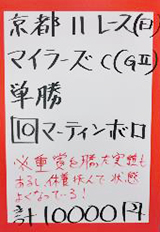 京都11レース(日)
マイラーズC(GⅡ)
単勝
10マーティンボロ
※重賞を勝た実績も
あるし、体重休んで状態
よくなっている!
計10000円